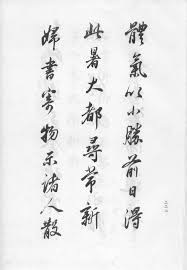 體氣以小勝前日得
此暑大都尋常新
婦書寄物示諸人散